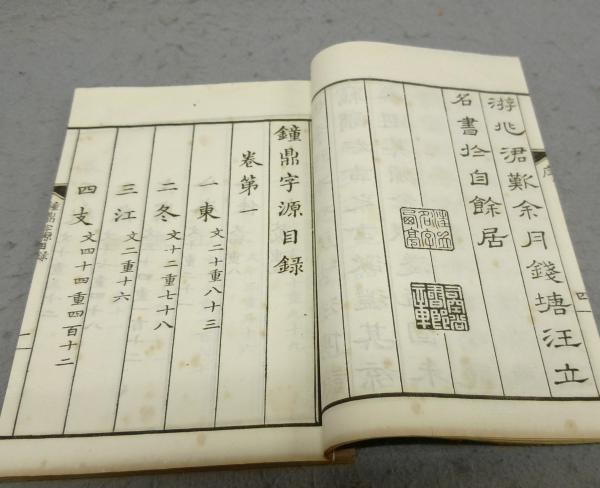 序
四
游兆涒歎余月錢塘汪立
名書於自餘居
鐘鼎字源目錄
卷第一
一東 文二十重八十三
二冬 文十二重七十八
三江 文二重十六
四支 文四十四重四百十二
鐘鼎字源目錄
一